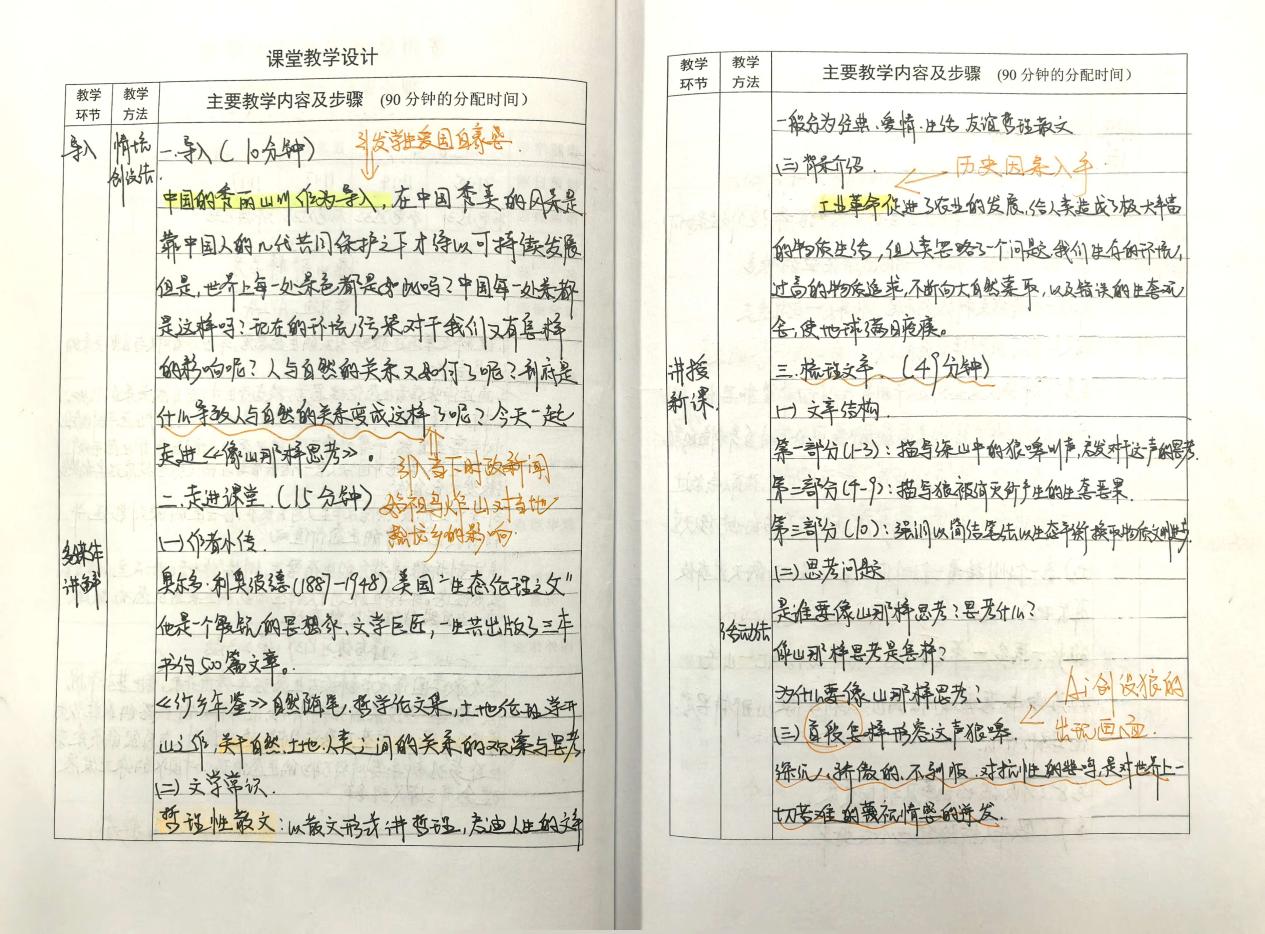 课堂教学设计
教学环节
教学方法
主要教学内容及步骤 (90分钟的分配时间)
导入
情境创设法
一.导入(10分钟)
引发学生爱国自豪感
中国的秀丽山川作为导入,在中国秀美的风景是
靠中国人的几代共同保护之下才得以可持续发展
但是,世界上每一处景色都是如此吗?中国每一处景都
是这样吗?现在的环境污染对于我们又有怎样
的影响呢?人与自然的关系又如何了呢?到底是
什么导致人与自然的关系变成这样了呢?今天一起
走进《像山那样思考》。
引入当下时政新闻
二.走进课堂.(15分钟)
始祖鸟炸山对当地
的影响.
(一)作者小传.
多媒体讲解
奥尔多·利奥波德(1887-1948)美国“生态伦理之父”
他是一个敏锐的思想家、文学巨匠,一生共出版了三本
书约500篇文章。
《沙乡年鉴》自然随笔,哲学论文集,土地伦理学开
山之作,关于自然.土地.人类之间的关系的观察与思考
(二)文学常识.
哲理性散文:以散文形式讲哲理,表迪人生的文章
教学环节
教学方法
主要教学内容及步骤 (90分钟的分配时间)
一般分为经典、爱情.生活.友谊哲理散文
(三)背景介绍.
历史因素入手.
工业革命促进了农业的发展,给人类造成了极大丰富
的物质生活,但人类忽略了一个问题.我们生存的环境,
过高的物质追求,不断向大自然索取,以及错误的生态观
念,使地球满目疮痍。
讲授新课.
三.梳理文章.(49分钟)
(一)文章结构.
第一部分(1-3):描写深山中的狼嗥叫声,启发对于这声的思考.
第二部分(4-9):描写狼被消灭所产生的生态恶果.
第三部分(10):强调以简洁笔法以生态平衡换取物质文明进步.
(二)思考问题
是谁要像山那样思考?思考什么?
活动法
像山那样思考是怎样?
为什么要像山那样思考?
Ai创设狼的
出现画面.
(三)首段怎样形容这声狼嗥.
深沉、骄傲的.不驯服.对抗性的悲鸣,是对世界上一
切苦难的蔑视情感的迸发.